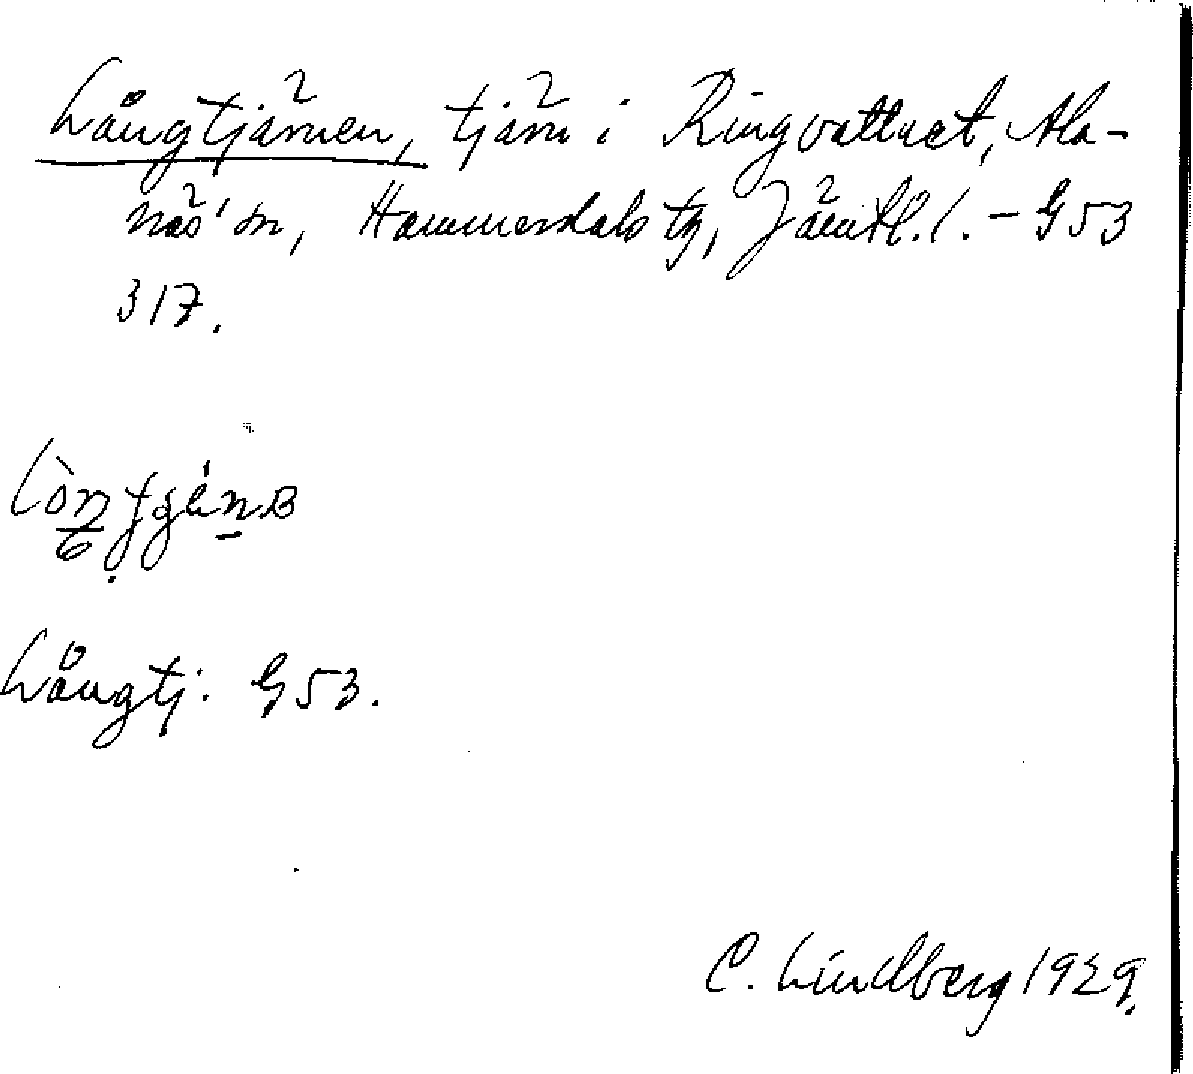 Långtjärnen, tjärn i Ringvattnet, Ala-
näs' sn, Hammerdals tg, Jämtl. l. – G53
317.
Långtj. G53.
C. Lindberg 1929.